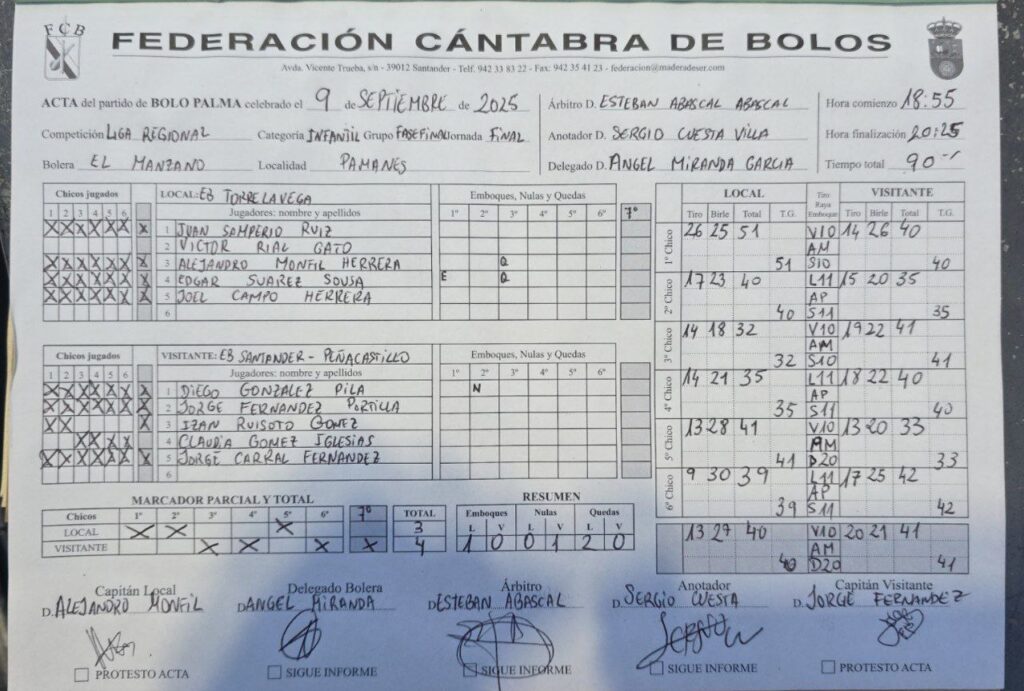 FCB
FEDERACIÓN CÁNTABRA DE BOLOS
Avda. Vicente Trueba, s/n - 39012 Santander - Telf. 942 33 83 22 - Fax: 942 35 41 23 - federacion@maderadeser.com
ACTA del partido de BOLO PALMA celebrado el 9 de SEPTIEMBRE de 2025
Competición LIGA REGIONAL Categoría INFANTIL Grupo FASE FINAL Jornada FINAL
Bolera EL MANZANO Localidad PAMANES
Árbitro D. ESTEBAN ABASCAL ABASCAL
Anotador D. SERGIO CUESTA VILLA
Delegado D. ANGEL MIRANDA GARCIA
Hora comienzo 18:55
Hora finalización 20:25
Tiempo total 90
Chicos jugados LOCAL: EB TORRELAVEGA Emboques, Nulas y Quedas
1 2 3 4 5 6 Jugadores: nombre y apellidos 1º 2º 3º 4º 5º 6º 7º
X X X X X X X 1 JUAN SAMPERIO RUIZ
2 VICTOR RIAL GATO
X X X X X X X 3 ALEJANDRO MONFIL HERRERA Q
X X X X X X X 4 EDGAR SUAREZ SOUSA E Q
X X X X X X X 5 JOEL CAMPO HERRERA
6
Chicos jugados VISITANTE: EB SANTANDER - PEÑACASTILLO Emboques, Nulas y Quedas
1 2 3 4 5 6 Jugadores: nombre y apellidos 1º 2º 3º 4º 5º 6º
X X X X X X X 1 DIEGO GONZALEZ PILA N
X X X X X X X 2 JORGE FERNANDEZ PORTILLA
X X X 3 IZAN RUISOTO GOMEZ
X X X X 4 CLAUDIA GOMEZ IGLESIAS
X X X X X X X 5 JORGE CARRAL FERNANDEZ
6
MARCADOR PARCIAL Y TOTAL
Chicos 1º 2º 3º 4º 5º 6º 7º TOTAL
LOCAL X X X 3
VISITANTE X X X X 4
RESUMEN
Emboques Nulas Quedas
L V L V L V
1 0 0 1 2 0
LOCAL Tiro Raya Emboque VISITANTE
Tiro Birle Total T.G. Tiro Birle Total T.G.
1º Chico 26 25 51 V10 14 26 40
AM
51 S10 40
2º Chico 17 23 40 L11 15 20 35
AP
40 S11 35
3º Chico 14 18 32 V10 19 22 41
AM
32 S10 41
4º Chico 14 21 35 L11 18 22 40
AP
35 S11 40
5º Chico 13 28 41 V10 13 20 33
AM
41 D20 33
6º Chico 9 30 39 L11 17 25 42
AP
39 S11 42
13 27 40 V10 20 21 41
AM
40 D20 41
Capitán Local
D. ALEJANDRO MONFIL
Delegado Bolera
D. ANGEL MIRANDA
Árbitro
D. ESTEBAN ABASCAL
Anotador
D. SERGIO CUESTA
Capitán Visitante
D. JORGE FERNANDEZ
PROTESTO ACTA
SIGUE INFORME
SIGUE INFORME
SIGUE INFORME
PROTESTO ACTA